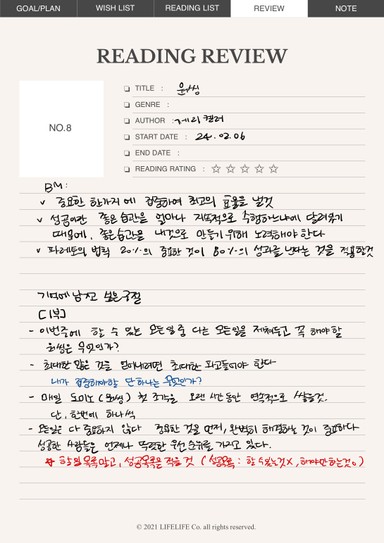 GOAL/PLAN WISH LIST READING LIST REVIEW NOTE
READING REVIEW
NO.8
TITLE : 원씽
GENRE :
AUTHOR : 게리 켈러
START DATE : 24.02.06
END DATE :
READING RATING : ☆ ☆ ☆ ☆ ☆
BM :
v 중요한 한가지에 집중하여 최고의 효율을 낼것
v 성공이란 좋은습관을 얼마나 지속적으로 수행하느냐에 달려있기
때문에, 좋은습관을 내것으로 만들기 위해 노력해야 한다
v 파레토의 법칙 20%의 중요한 것이 80%의 성과를 낸다는 것을 적용할것
기억에 남긴 싶은 구절
[1부]
- 이번주에 할 수 있는 모든일 중 다른 모든일을 제쳐두고 꼭 해야할
원씽은 무엇인가?
- 최대한 많은 것을 얻어내려면 최대한 파고들어야 한다
내가 집중해야할 단 하나는 무엇인가?
- 매일 도미노 (원씽) 첫 조각을 오랜 시간동안 연속적으로 쓰러뜨릴것.
단, 한번에 하나씩
- 모든일은 다 중요하지 않다 중요한 것을 먼저, 완벽히 해결하는 것이 중요하다
성공한 사람들은 언제나 뚜렷한 우선순위를 가지고 있다.
할일목록말고, 성공목록을 적을 것 (성공목록 : 할 수있는것 X, 해야만하는것 O)
© 2021 LIFELIFE Co. all rights reserved.